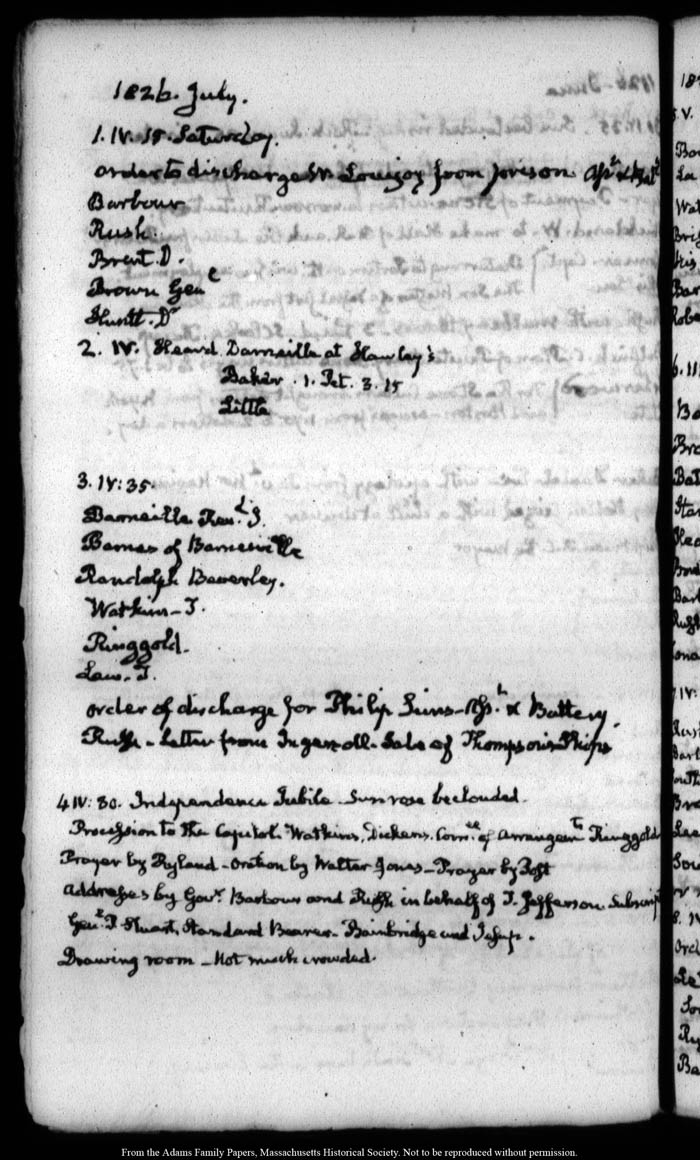 1826. July.
1. IV. 15. Saturday.
order to discharge W. Lovejoy from prison. Ass.lt & Bat.y
Barbour
Rush.
Brent. D.
Brown Gen.
Huntt. Dr
2. IV. Heard Darneille at Hawley's
Baker. 1. Pet. 3. 15
Little
3. IV: 35.
Darneille Revd. J.
Barnes of Barnesville
Randolph Beverley.
Watkins-T.
Ringgold.
Law. T.
order of discharge for Philip Sims - Ass.lt & Battery.
Rush - Letter from Ingersoll - Sale of Thompson's Ships
4 IV: 30. Independence Jubile. Sun rose beclouded.
Procession to the Capitol. Watkins, Dickens. Com.ee of Arrangem.ts Ringgold
Prayer by Ryland - Oration by Walter Jones - Prayer by Post
Addresses by Gov.r Barbour and Rush in behalf of T. Jefferson. Subscript
Gen.l P. Stuart, Standard Bearer. Bainbridge and Jesup.
Drawing room - Not much crowded.
From the Adams Family Papers, Massachusetts Historical Society. Not to be reproduced without permission.